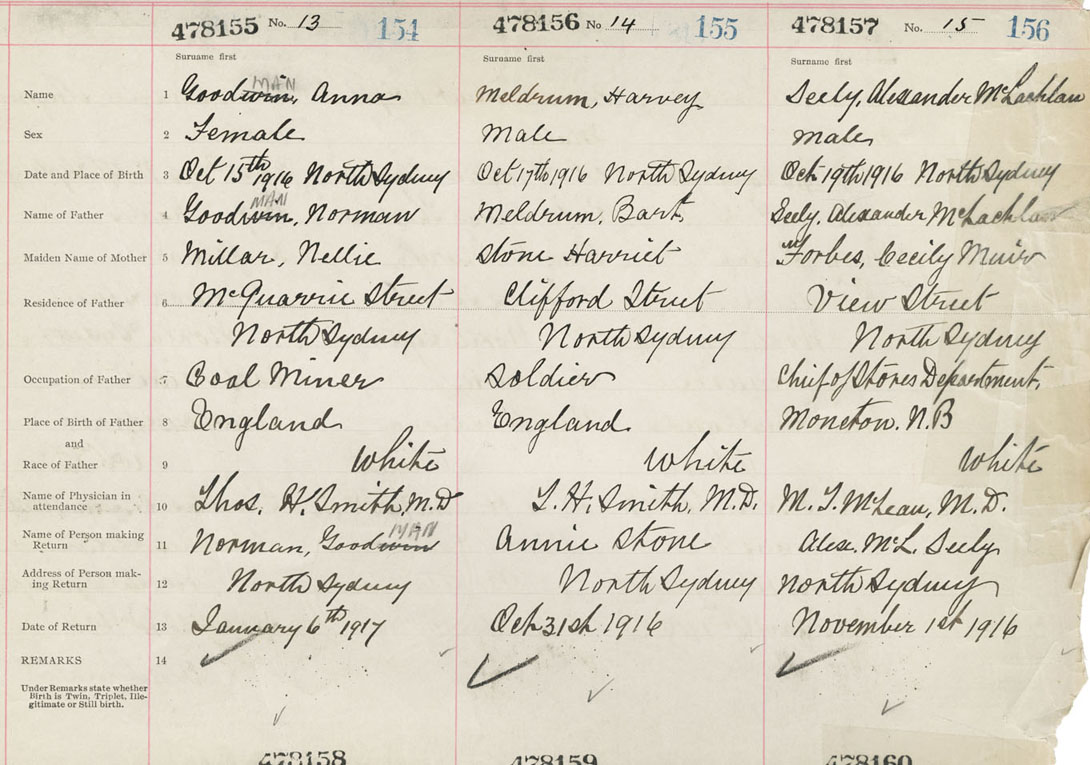 478155 No. 13 154 478156 No 14 155 478157 No. 15 156
Surname first Surname first Surname first
Name 1 Goodwin, MAN Anna Meldrum, Harvey Seely, Alexander McLachlan
Sex 2 Female Male Male
Date and Place of Birth 3 Oct 15th 1916 North Sydney Oct 17th 1916 North Sydney Oct 19th 1916 North Sydney
Name of Father 4 Goodwin, MAN Norman Meldrum, Bart. Seely, Alexander McLachlan
Maiden Name of Mother 5 Millar, Nellie Stone Harriet Forbes, Cecily Muir
Residence of Father 6 McQuarrie Street Clifford Street View Street
North Sydney North Sydney North Sydney
Occupation of Father 7 Coal Miner Soldier Chief of Stores Department.
Place of Birth of Father 8 England England Moncton. N.B
and
Race of Father 9 White White White
Name of Physician in
attendance 10 Thos. H. Smith, M.D T. H. Smith, M.D. M. T. McLean, M.D.
Name of Person making
Return 11 Norman, Goodwin MAN Annie Stone Alex. McL. Seely
Address of Person mak-
ing Return 12 North Sydney North Sydney North Sydney
Date of Return 13 January 6th 1917 Oct 31st 1916 November 1st 1916
REMARKS 14
Under Remarks state whether
Birth is Twin, Triplet, Ille-
gitimate or Still birth.
478158 478159 478160